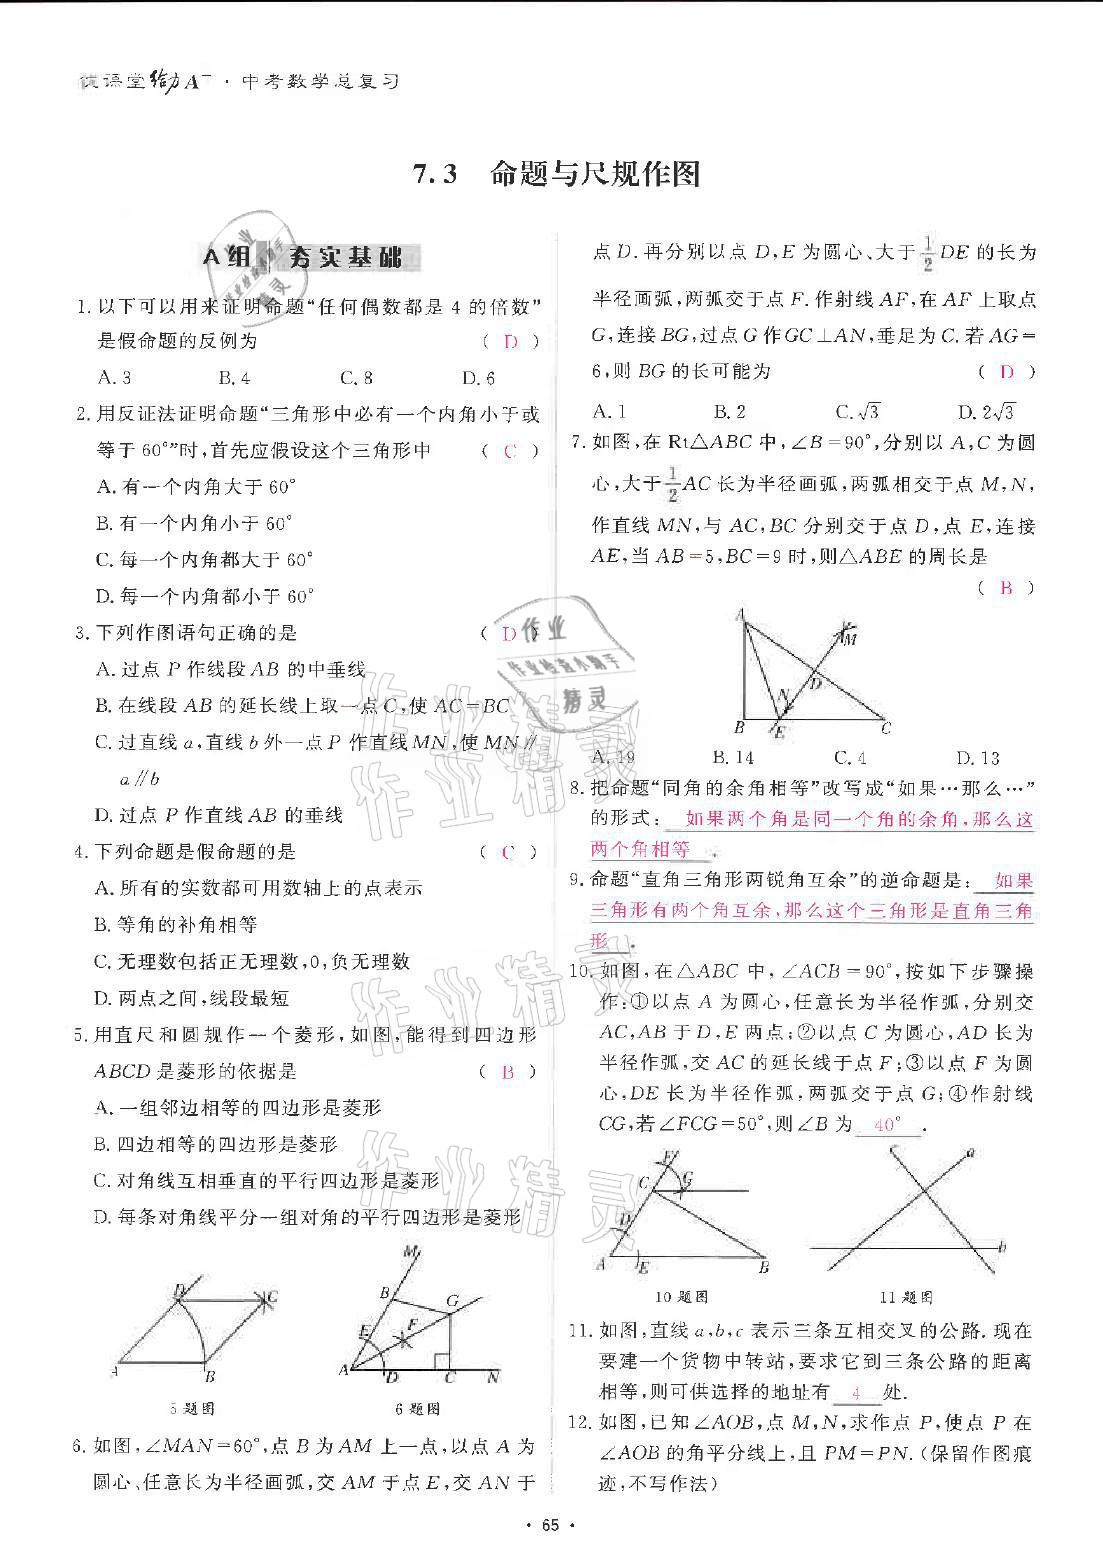 优课堂给力A⁺·中考数学总复习
7.3 命题与尺规作图
A组 夯实基础
1. 以下可以用来证明命题“任何偶数都是 4 的倍数”
是假命题的反例为 ( D )
A. 3 B. 4 C. 8 D. 6
2. 用反证法证明命题“三角形中必有一个内角小于或
等于 60°”时,首先应假设这个三角形中 ( C )
A. 有一个内角大于 60°
B. 有一个内角小于 60°
C. 每一个内角都大于 60°
D. 每一个内角都小于 60°
3. 下列作图语句正确的是 ( D )
A. 过点 P 作线段 AB 的中垂线
B. 在线段 AB 的延长线上取一点 C,使 AC=BC
C. 过直线 a,直线 b 外一点 P 作直线 MN,使 MN∥
a∥b
D. 过点 P 作直线 AB 的垂线
4. 下列命题是假命题的是 ( C )
A. 所有的实数都可用数轴上的点表示
B. 等角的补角相等
C. 无理数包括正无理数,0,负无理数
D. 两点之间,线段最短
5. 用直尺和圆规作一个菱形,如图,能得到四边形
ABCD 是菱形的依据是 ( B )
A. 一组邻边相等的四边形是菱形
B. 四边相等的四边形是菱形
C. 对角线互相垂直的平行四边形是菱形
D. 每条对角线平分一组对角的平行四边形是菱形
D C A B
M B G E F A D C N
5 题图 6 题图
6. 如图,∠MAN=60°,点 B 为 AM 上一点,以点 A 为
圆心,任意长为半径画弧,交 AM 于点 E,交 AN 于
点 D. 再分别以点 D,E 为圆心、大于 1/2 DE 的长为
半径画弧,两弧交于点 F. 作射线 AF,在 AF 上取点
G,连接 BG,过点 G 作 GC⊥AN,垂足为 C. 若 AG=
6,则 BG 的长可能为 ( D )
A. 1 B. 2 C. √3 D. 2√3
7. 如图,在 Rt△ABC 中,∠B=90°,分别以 A,C 为圆
心,大于 1/2 AC 长为半径画弧,两弧相交于点 M,N,
作直线 MN,与 AC,BC 分别交于点 D,点 E,连接
AE,当 AB=5,BC=9 时,则△ABE 的周长是
( B )
A M D N B E C
A. 19 B. 14 C. 4 D. 13
8. 把命题“同角的余角相等”改写成“如果…那么…”
的形式: 如果两个角是同一个角的余角,那么这
两个角相等 .
9. 命题“直角三角形两锐角互余”的逆命题是: 如果
三角形有两个角互余,那么这个三角形是直角三角
形 .
10. 如图,在△ABC 中,∠ACB=90°,按如下步骤操
作:①以点 A 为圆心,任意长为半径作弧,分别交
AC,AB 于 D,E 两点;②以点 C 为圆心,AD 长为
半径作弧,交 AC 的延长线于点 F;③以点 F 为圆
心,DE 长为半径作弧,两弧交于点 G;④作射线
CG,若∠FCG=50°,则∠B 为 40° .
F C G D A E B
c a b
10 题图 11 题图
11. 如图,直线 a,b,c 表示三条互相交叉的公路. 现在
要建一个货物中转站,要求它到三条公路的距离
相等,则可供选择的地址有 4 处.
12. 如图,已知∠AOB,点 M,N,求作点 P,使点 P 在
∠AOB 的角平分线上,且 PM=PN.(保留作图痕
迹,不写作法)
· 65 ·
作业
作业检查小助手
精灵
作业精灵
作业精灵
作业精灵